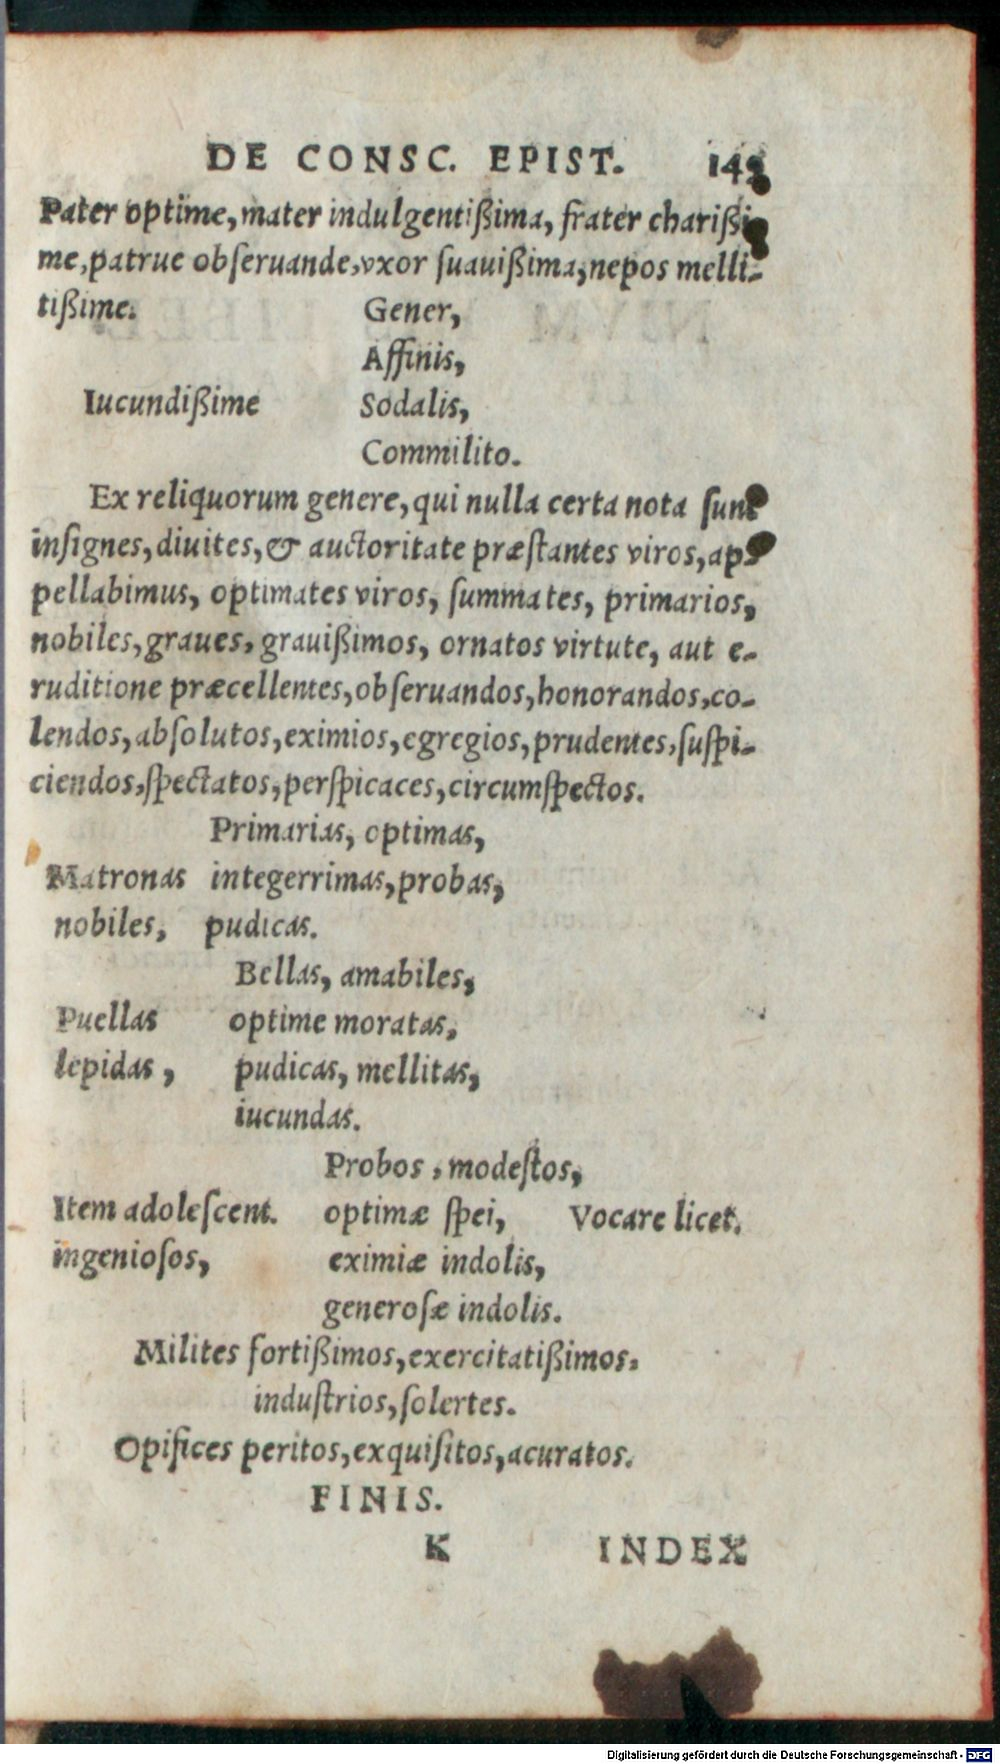 DE CONSC. EPIST. 145
Pater optime, mater indulgentißima, frater charißi-
me, patrue obſeruande, vxor ſuauißima, nepos melli-
tißime. Gener,
Affinis,
Iucundißime Sodalis,
Commilito.
Ex reliquorum genere, qui nulla certa nota ſunt
inſignes, diuites, & auctoritate præſtantes viros, ap-
pellabimus, optimates viros, ſummates, primarios,
nobiles, graues, grauißimos, ornatos virtute, aut e-
ruditione præcellentes, obſeruandos, honorandos, co-
lendos, abſolutos, eximios, egregios, prudentes, ſuſpi-
ciendos, ſpectatos, perſpicaces, circumſpectos.
Primarias, optimas,
Matronas integerrimas, probas,
nobiles, pudicas.
Bellas, amabiles,
Puellas optime moratas,
lepidas, pudicas, mellitas,
iucundas.
Probos, modeſtos,
Item adoleſcent. optimæ ſpei, Vocare licet.
ingenioſos, eximiæ indolis,
generoſæ indolis.
Milites fortißimos, exercitatißimos,
induſtrios, ſolertes.
Opifices peritos, exquiſitos, acuratos.
FINIS.
K INDEX
Digitalisierung gefördert durch die Deutsche Forschungsgemeinschaft - DFG